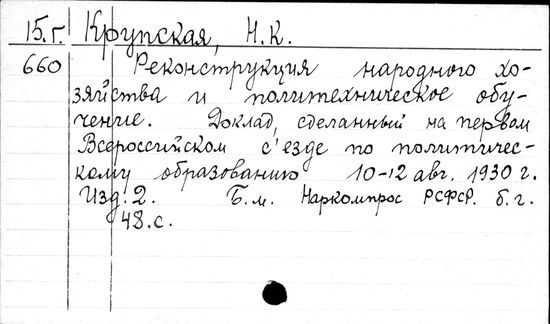 15.г. Крупская, Н.К.
660 Реконструкция народного хо-
зяйства и политехническое обу-
чение. Доклад, сделанный на первом
Всероссийском с'езде по политичес-
кому образованию 10-12 авг. 1930 г.
Изд. 2. Б.м. Наркомпрос РСФСР. б.г.
48.с.